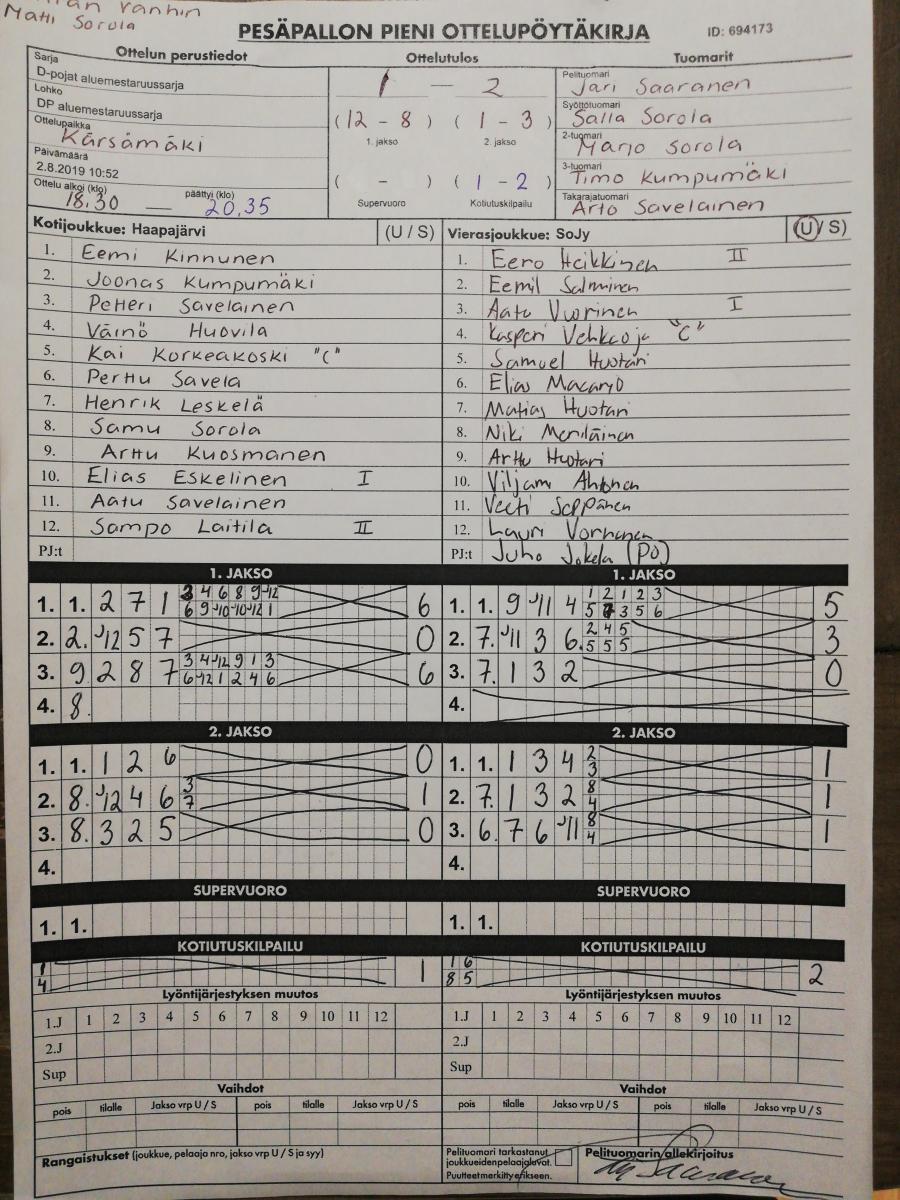 Matti Sorola
PESÄPALLON PIENI OTTELUPÖYTÄKIRJA ID: 694173
Ottelun perustiedot Ottelutulos Tuomarit
Sarja
D-pojat aluemestaruussarja
Lohko
DP aluemestaruussarja
Ottelupaikka
Kärsämäki
Päivämäärä
2.8.2019 10:52
Ottelu alkoi (klo) päättyi (klo)
18.30 — 20.35
1 — 2
( 12 - 8 ) ( 1 - 3 )
1. jakso 2. jakso
( - ) ( 1 - 2 )
Supervuoro Kotiutuskilpailu
Pelituomari
Jari Saaranen
Syöttötuomari
Salla Sorola
2-tuomari
Marjo Sorola
3-tuomari
Timo Kumpumäki
Takarajatuomari
Arto Savelainen
Kotijoukkue: Haapajärvi (U / S)
1. Eemi Kinnunen
2. Joonas Kumpumäki
3. Petteri Savelainen
4. Väinö Huovila
5. Kai Korkeakoski "C"
6. Perttu Savela
7. Henrik Leskelä
8. Samu Sorola
9. Arttu Kuosmanen
10. Elias Eskelinen I
11. Aatu Savelainen
12. Sampo Laitila II
PJ:t
Vierasjoukkue: SoJy (U / S)
1. Eero Heikkinen II
2. Eemil Salminen
3. Aatu Vuorinen I
4. Kasperi Vehkaoja "C"
5. Samuel Huotari
6. Elias
7. Matias Huotari
8. Niki Meriläinen
9. Arttu Huotari
10. Viljami Ahtonen
11. Veeti Seppänen
12. Lauri Vornanen
PJ:t Juho Jokela (PJ)
1. JAKSO
1. 1. 2 7 1 3 4 6 8 9 12 6
6 9 10 10 12 1
2. 2. 12 5 7 0
3. 9 2 8 7 3 4 12 9 1 3 6
6 12 1 2 4 6
4. 8.
1. JAKSO
1. 1. 9 11 4 1 2 1 2 3 5
5 7 3 5 6
2. 7. 11 3 6. 2 4 5 3
5 5 5
3. 7. 1 3 2 0
4.
2. JAKSO
1. 1. 1 2 6 0
2. 8. 12 4 6 3 1
7
3. 8. 3 2 5 0
4.
2. JAKSO
1. 1. 1 3 4 2 1
3
2. 7. 1 3 2 8 1
4
3. 6. 7 6 11 8 1
4
4.
SUPERVUORO SUPERVUORO
1. 1. 1. 1.
KOTIUTUSKILPAILU KOTIUTUSKILPAILU
1 1
4
1 6 2
8 5
Lyöntijärjestyksen muutos Lyöntijärjestyksen muutos
1.J 1 2 3 4 5 6 7 8 9 10 11 12 1.J 1 2 3 4 5 6 7 8 9 10 11 12
2.J 2.J
Sup Sup
Vaihdot Vaihdot
pois tilalle Jakso vrp U / S pois tilalle Jakso vrp U / S pois tilalle Jakso vrp U / S pois tilalle Jakso vrp U / S
Rangaistukset (joukkue, pelaaja nro, jakso vrp U / S ja syy)
Pelituomari tarkastanut
joukkueiden pelaajaluvat.
Puutteet merkitty erikseen.
Pelituomarin allekirjoitus